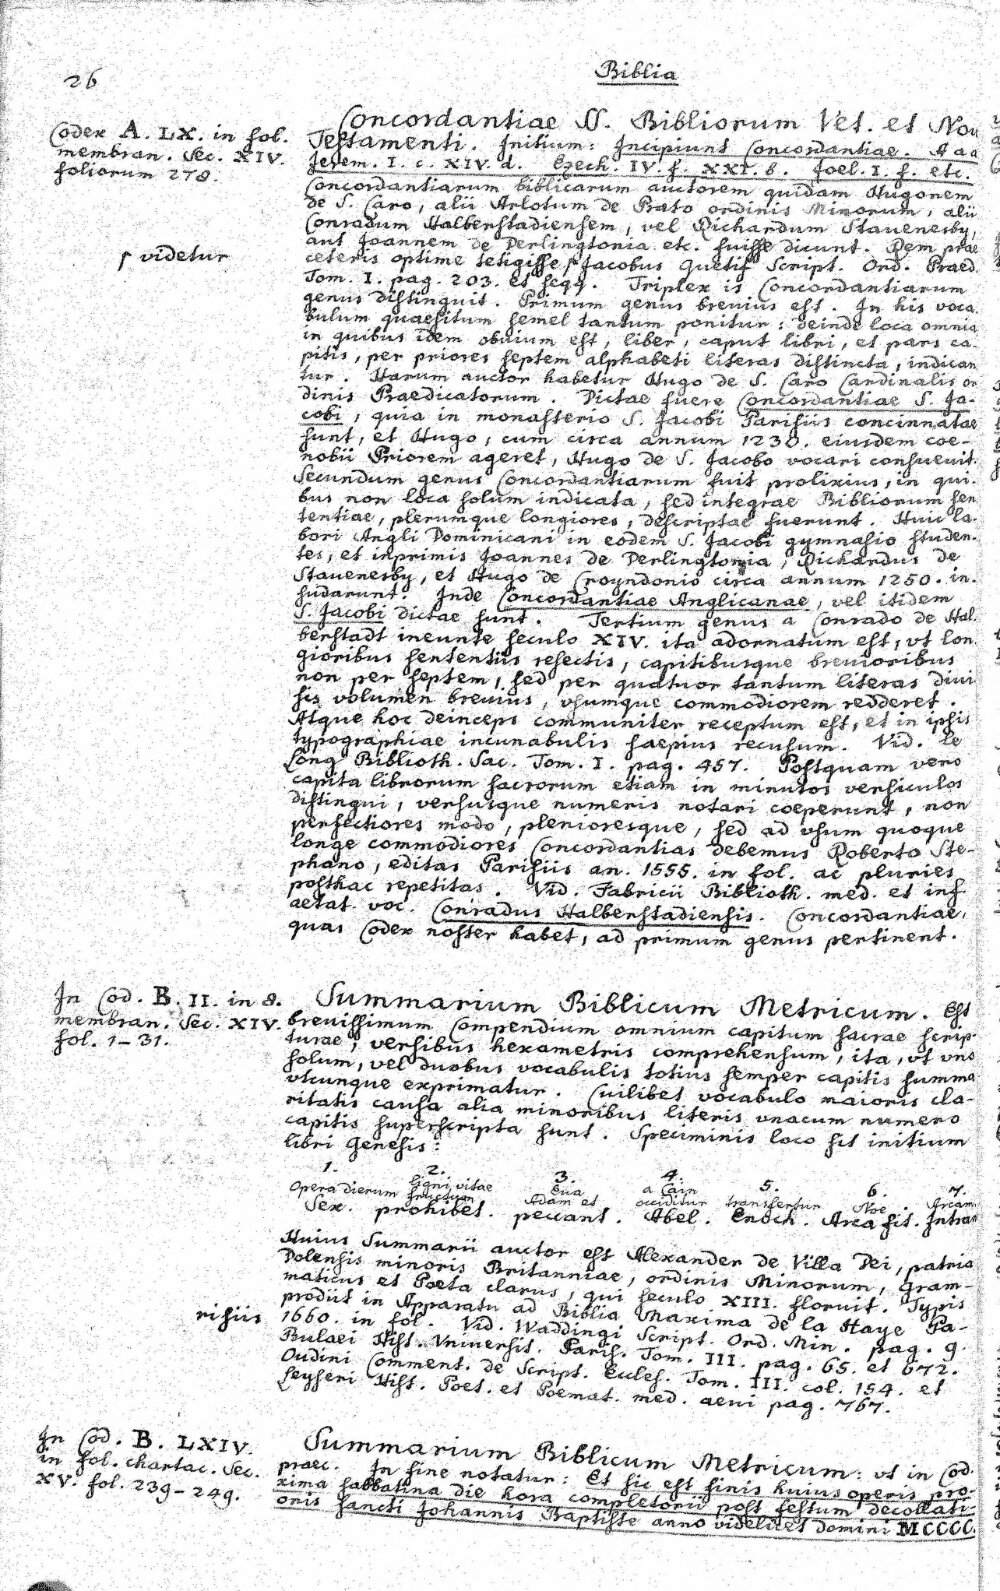 26
Biblia
Codex A. LX. in fol.
membran. Sec. XIV.
foliorum 278.
Concordantiae SS. Bibliorum Vet. et Nov
Testamenti. Initium: Incipiunt Concordantiae. A a a
Jerem. I. c. XIV. d. Ezech. IV. f. XXI. 8. Joel. I. f. etc.
Concordantiarum biblicarum auctorem quidam Hugonem
de S. Caro, alii Arlotum de Prato ordinis Minorum, alii
Conradum Halberstadiensem, vel Richardum Stauenesby,
aut Joannem de Derlingtonia etc. fuisse dicunt. Rem prae
ceteris optime tetigisse ⌈ Jacobus Quetif Script. Ord. Praed.
⌈ videtur
Tom. I. pag. 203. et seqq. Triplex is Concordantiarum
genus distinguit. Primum genus brevius est. In his voca
bulum quaesitum semel tantum ponitur: deinde loca omnia
in quibus idem obuium est, liber, caput libri, et pars ca-
pitis, per priores septem alphabeti literas distincta, indican
tur. Harum auctor habetur Hugo de S. Caro Cardinalis or
dinis Praedicatorum. Dictae fuere Concordantiae S. Ja-
cobi, quia in monasterio S. Jacobi Parisiis concinnatae
sunt, et Hugo, cum circa annum 1230. eiusdem coe-
nobii Priorem ageret, Hugo de S. Jacobo vocari consueuit.
Secundum genus Concordantiarum fuit prolixius, in qui-
bus non loca solum indicata, sed integrae Bibliorum sen
tentiae, plerumque longiores, descriptae fuerunt. Huic la-
bori Angli Dominicani in eodem S. Jacobi gymnasio studen-
tes, et inprimis Joannes de Derlingtonia, Richardus de
Stauenesby, et Hugo de Croyndonio circa annum 1250. in-
sudarunt. Inde Concordantiae Anglicanae, vel itidem
S. Jacobi dictae sunt. Tertium genus a Conrado de Hal
berstadt ineunte seculo XIV. ita adornatum est, vt lon
gioribus sententiis resectis, capitibusque breuioribus
non per septem, sed per quatuor tantum literas diui
sis volumen breuius, vsumque commodiorem redderet.
Atque hoc deinceps communiter receptum est, et in ipsis
typographiae incunabulis saepius recusum. Vid. Le
Long Biblioth. Sac. Tom. I. pag. 457. Postquam vero
capita librorum sacrorum etiam in minutos versiculos
distingui, versusque numeris notari coeperunt, non
perfectiores modo, plenioresque, sed ad vsum quoque
longe commodiores Concordantias debemus Roberto Ste-
phano, editas Parisiis an. 1555. in fol. ac pluries
posthac repetitas. Vid. Fabricii Biblioth. med. et inf.
aetat. voc. Conradus Halberstadiensis. Concordantiae,
quas Codex noster habet, ad primum genus pertinent.
In Cod. B. II. in 8.
membran. Sec. XIV.
fol. 1–31.
Summarium Biblicum Metricum. Est
breuissimum Compendium omnium capitum sacrae scrip-
turae, versibus hexametris comprehensum, ita, vt vno
solum, vel duobus vocabulis totius semper capitis summa
vtcunque exprimatur. Cuilibet vocabulo maioris cla-
ritatis causa alia minoribus literis vnacum numero
capitis superscripta sunt. Speciminis loco sit initium
libri Genesis:
1. 2. 3. 4. 5. 6. 7.
Opera dierum ligni vitae fructum Eua Adam et a Cain occiditur transfertur Noe. Arcam
Sex. prohibet. peccant. Abel. Enoch. Arca fit. Intran
Huius Summarii auctor est Alexander de Villa Dei, patria
Dolensis minoris Britanniae, ordinis Minorum, Gram-
maticus et Poeta clarus, qui seculo XIII. floruit. Typis
prodiit in Apparatu ad Biblia Maxima de la Haye Pa-
risiis 1660. in fol. Vid. Waddingi Script. Ord. Min. pag. 9.
Bulaei Hist. Vniuersit. Paris. Tom. III. pag. 65. et 672.
Oudini Comment. de Script. Eccles. Tom. III. col. 154. et
Leyseri Hist. Poet. et Poemat. med. aeui pag. 767.
In Cod. B. LXIV.
in fol. chartac. Sec.
XV. fol. 239–249.
Summarium Biblicum Metricum: vt in Cod.
praec. In fine notatur: Et sic est finis huius operis pro-
xima sabbatina die hora completorii post festum decollati-
onis sancti Johannis Baptiste anno videlicet domini MCCCC.